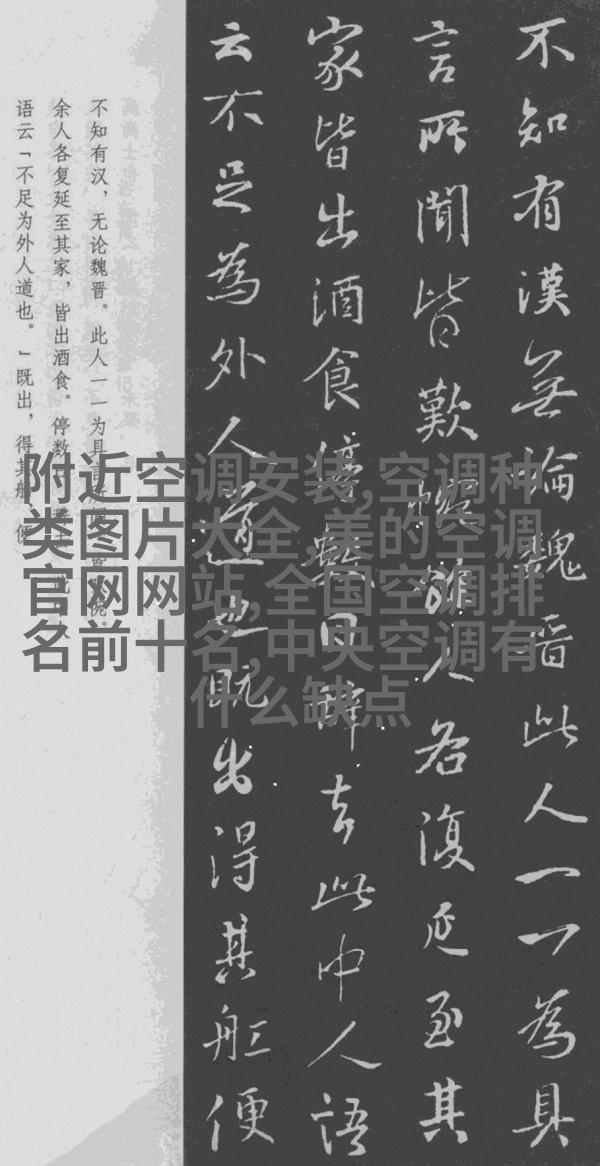 不知有漢無論魏晋此人一一為具
言所聞皆歎惋餘人各復延至其
家皆出酒食停數日辭去此中人語
云不足為外人道也既出得其舡便
不知有汉，无论魏晋。此人一一为具言
余人各复延至其家，皆出酒食。停数
语云「不足为外人道也。」既出，得其船，便
附近空调安装,空调种
类图片大全,美的空调
官网网站,全国空调排
名前十名,中央空调有
什么缺点